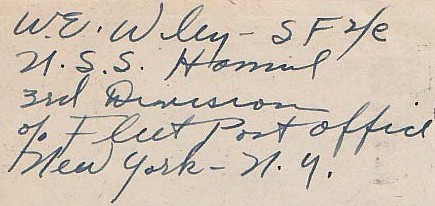 W.E. Wiley - S F 2/c
U.S.S. Hamul
3rd Division
c/o Fleet Post Office
New York - N.Y.